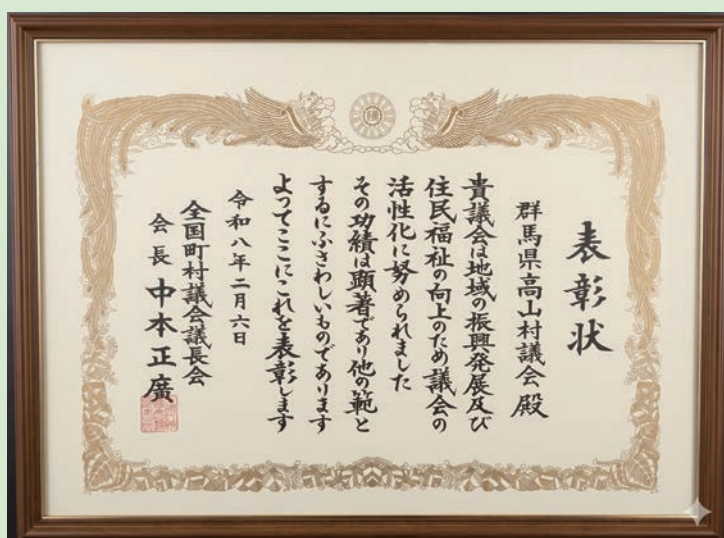 表彰状
群馬県高山村議会殿
貴議会は地域の振興発展及び
住民福祉の向上のため議会の
活性化に努められました
その功績は顕著であり他の範と
するにふさわしいものであります
よってここにこれを表彰します
令和八年二月六日
全国町村議会議長会
会長 中本正廣